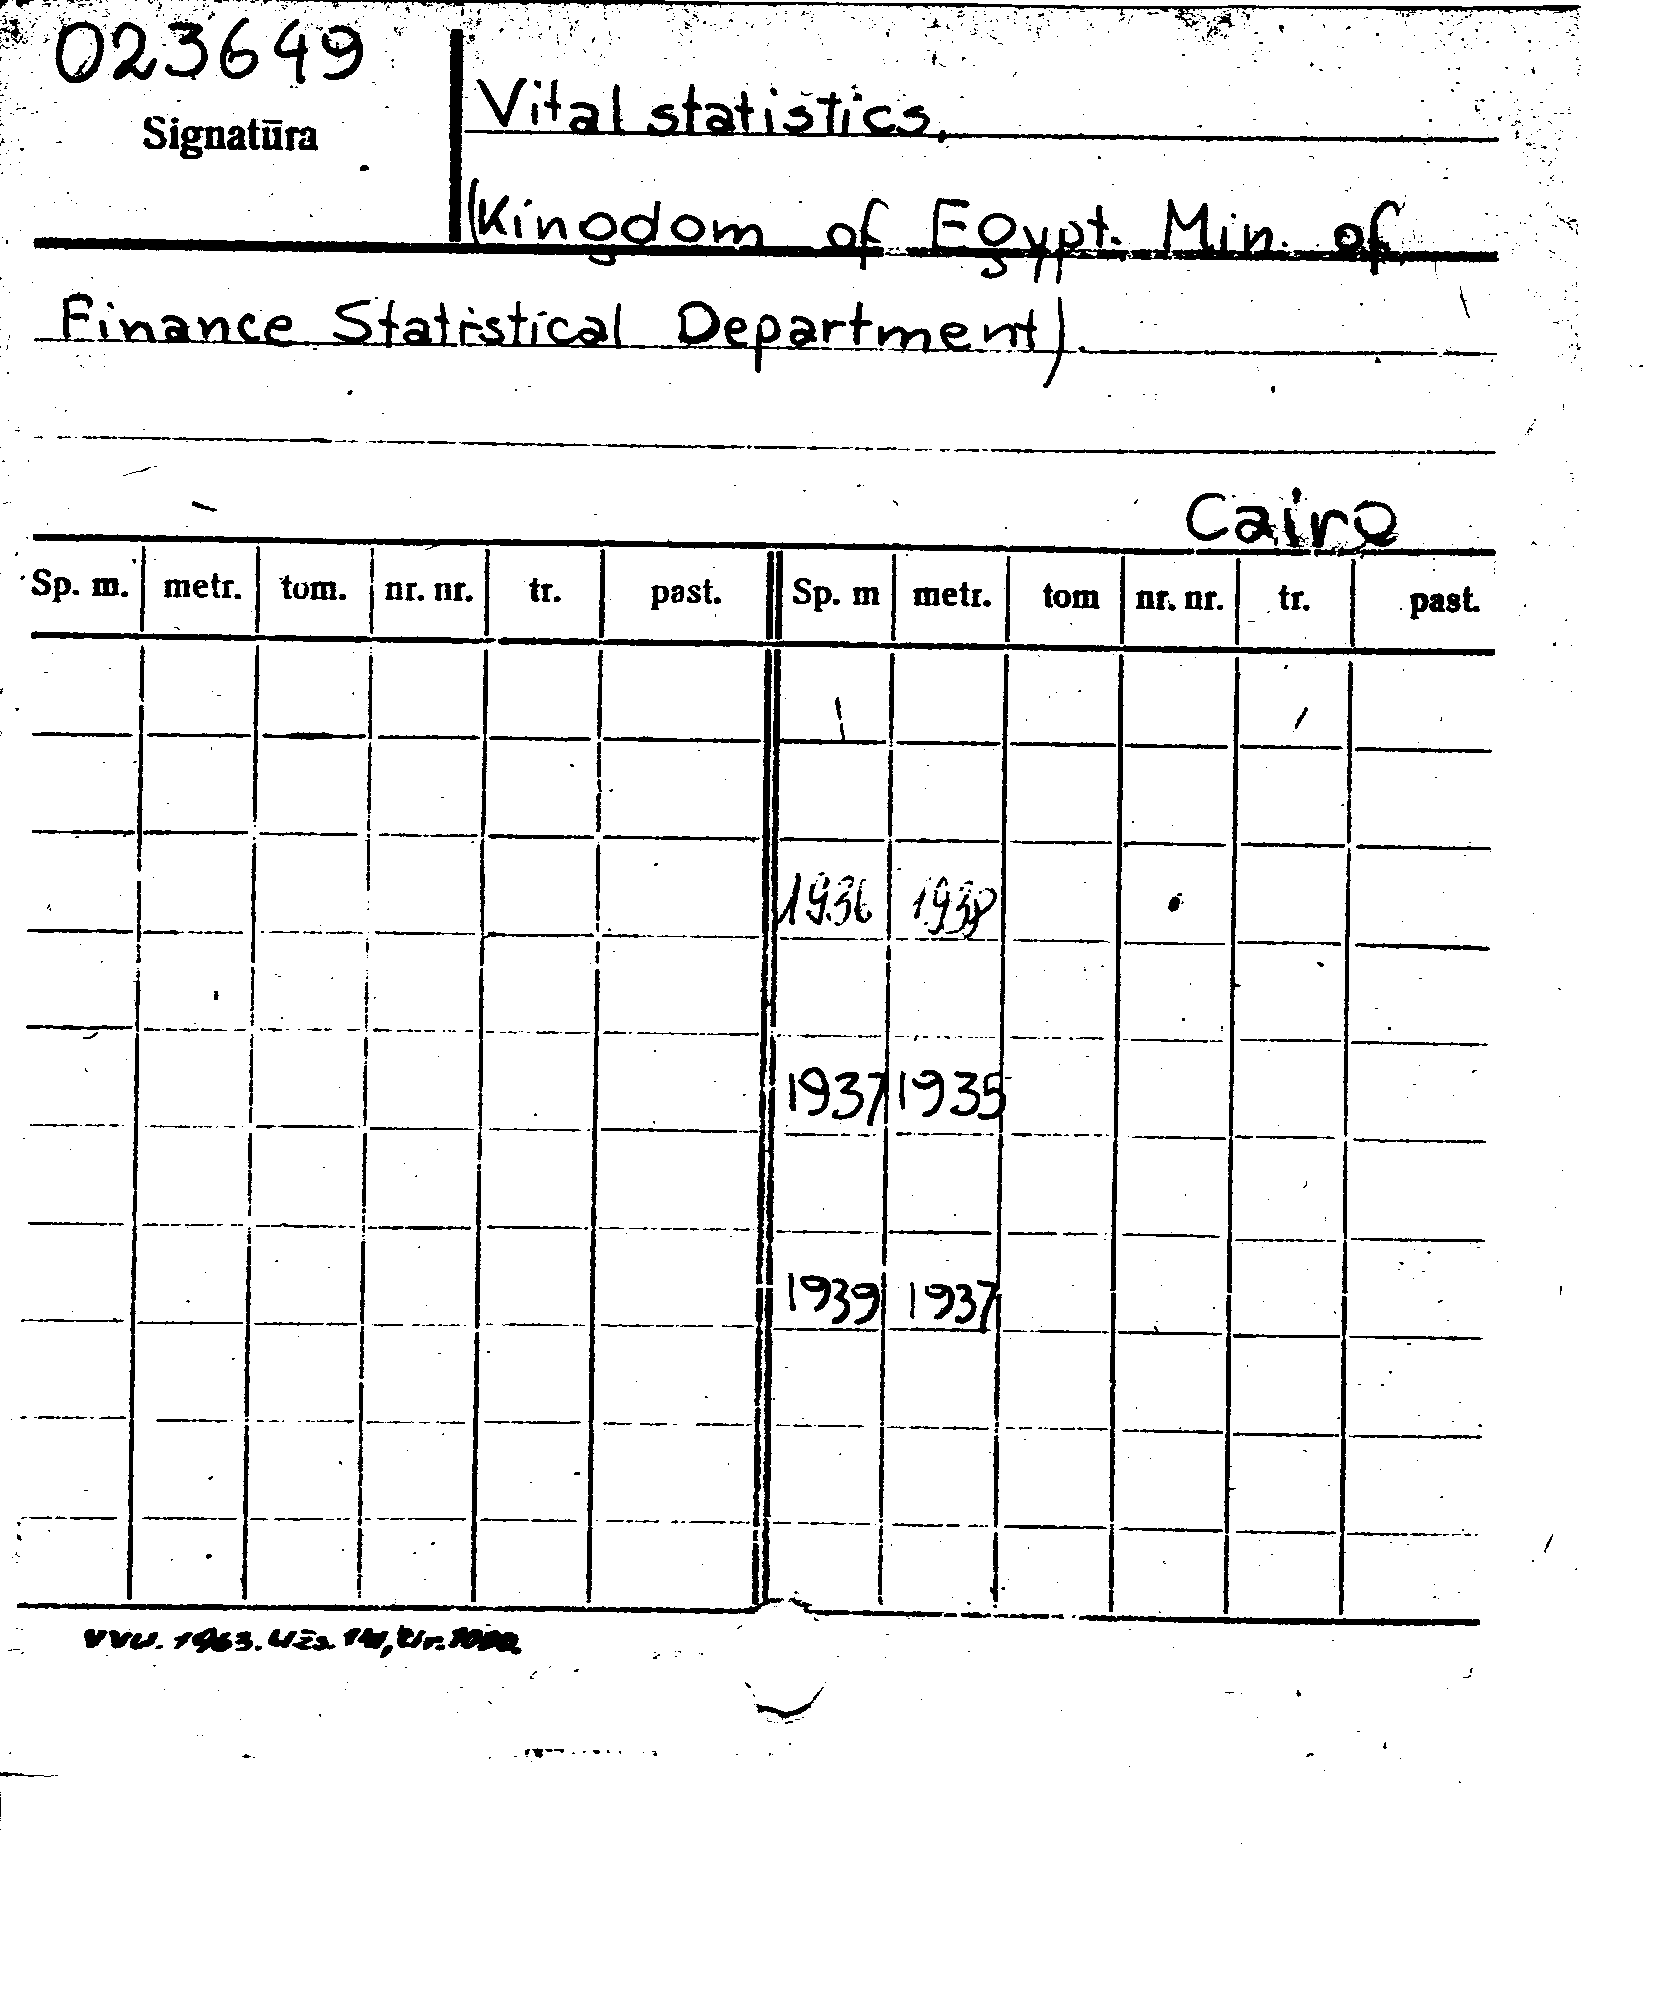 023649
Signatūra
Vital statistics,
(Kingdom of Egypt. Min. of
Finance Statistical Department).
Cairo
Sp. m. metr. tom. nr. nr. tr. past. Sp. m metr. tom nr. nr. tr. past.
1936
1937 1935
1939 1937
VVU. 1963. Užs. tir.